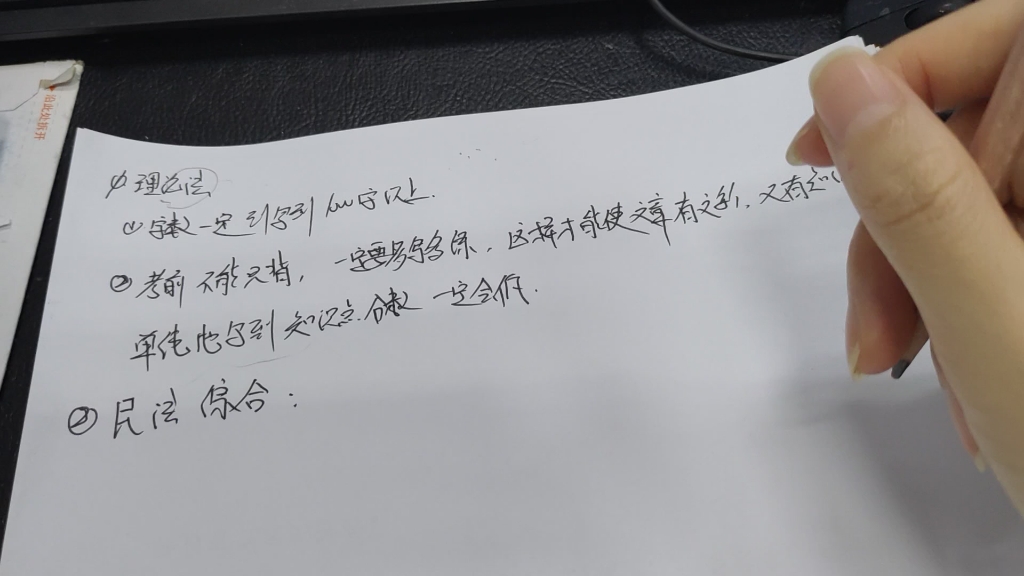 沿此处拆开
① 理论法
① 字数一定到写到1000字以上.
② 考前不能只背, 一定要多写多练, 这样才能使文章有文彩, 又有
单纯也写到知识点. 分数一定会低.
② 民法综合: